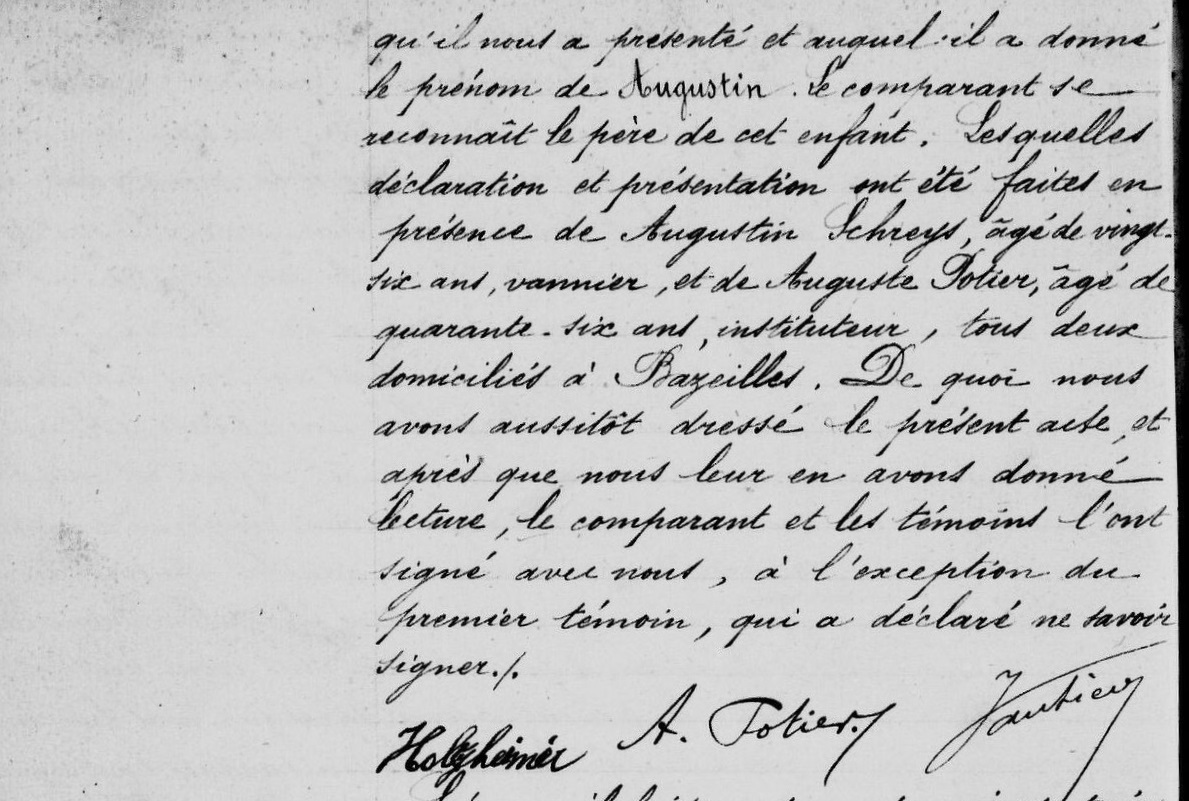 qu'il nous a présenté et auquel il a donné
le prénom de Augustin. Le comparant se
reconnaît le père de cet enfant. Lesquelles
déclaration et présentation ont été faites en
présence de Augustin Schreys, âgé de vingt-
six ans, vannier, et de Auguste Potier, âgé de
quarante-six ans, instituteur, tous deux
domiciliés à Bazeilles. De quoi nous
avons aussitôt dressé le présent acte, et
après que nous leur en avons donné
lecture, le comparant et les témoins l'ont
signé avec nous, à l'exception du
premier témoin, qui a déclaré ne savoir
signer./.
Holzheimer A. Potier